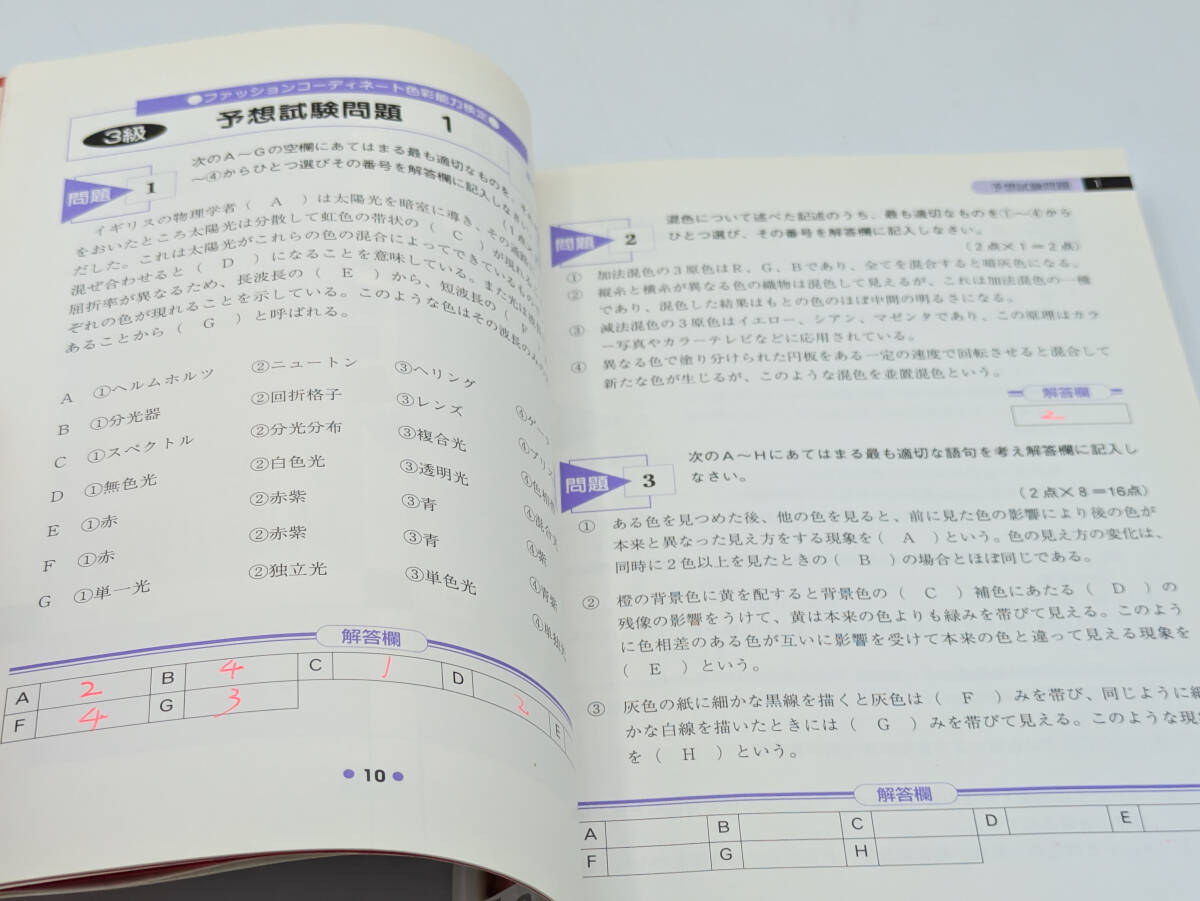 ●ファッションコーディネート色彩能力検定●
3級 予想試験問題 1
問題 1
次のA～Gの空欄にあてはまる最も適切なものを、
～④からひとつ選びその番号を解答欄に記入しなさい
イギリスの物理学者( A )は太陽光を暗室に導き、その
をおいたところ太陽光は分散して虹色の帯状の( C )が現れ
だした。これは太陽光がこれらの色の混合によってできている
混ぜ合わせると( D )になることを意味している。また光は
屈折率が異なるため、長波長の( E )から、短波長の( F
ぞれの色が現れることを示している。このような色はその波長の
あることから( G )と呼ばれる。
A ①ヘルムホルツ ②ニュートン ③ヘリング ④ゲー
B ①分光器 ②回折格子 ③レンズ ④プリズ
C ①スペクトル ②分光分布 ③複合光 ④色相
D ①無色光 ②白色光 ③透明光 ④混合
E ①赤 ②赤紫 ③青 ④紫
F ①赤 ②赤紫 ③青 ④青紫
G ①単一光 ②独立光 ③単色光 ④単
解答欄
A 2 B 4 C 1 D 2 E
F 4 G 3
●10●
予想試験問題 1
問題 2
混色について述べた記述のうち、最も適切なものを①～④から
ひとつ選び、その番号を解答欄に記入しなさい。
(2点×1＝2点)
① 加法混色の3原色はR、G、Bであり、全てを混合すると暗灰色になる。
② 縦糸と横糸が異なる色の織物は混色して見えるが、これは加法混色の一種
であり、混色した結果はもとの色のほぼ中間の明るさになる。
③ 減法混色の3原色はイエロー、シアン、マゼンタであり、この原理はカラ
ー写真やカラーテレビなどに応用されている。
④ 異なる色で塗り分けられた円板をある一定の速度で回転させると混合して
新たな色が生じるが、このような混色を並置混色という。
解答欄
2
問題 3
次のA～Hにあてはまる最も適切な語句を考え解答欄に記入し
なさい。
(2点×8＝16点)
① ある色を見つめた後、他の色を見ると、前に見た色の影響により後の色が
本来と異なった見え方をする現象を( A )という。色の見え方の変化は、
同時に2色以上を見たときの( B )の場合とほぼ同じである。
② 橙の背景色に黄を配すると背景色の( C )補色にあたる( D )の
残像の影響をうけて、黄は本来の色よりも緑みを帯びて見える。このよう
に色相差のある色が互いに影響を受けて本来の色と違って見える現象を
( E )という。
③ 灰色の紙に細かな黒線を描くと灰色は( F )みを帯び、同じように細
かな白線を描いたときには( G )みを帯びて見える。このような現
を( H )という。
解答欄
A B C D E
F G H